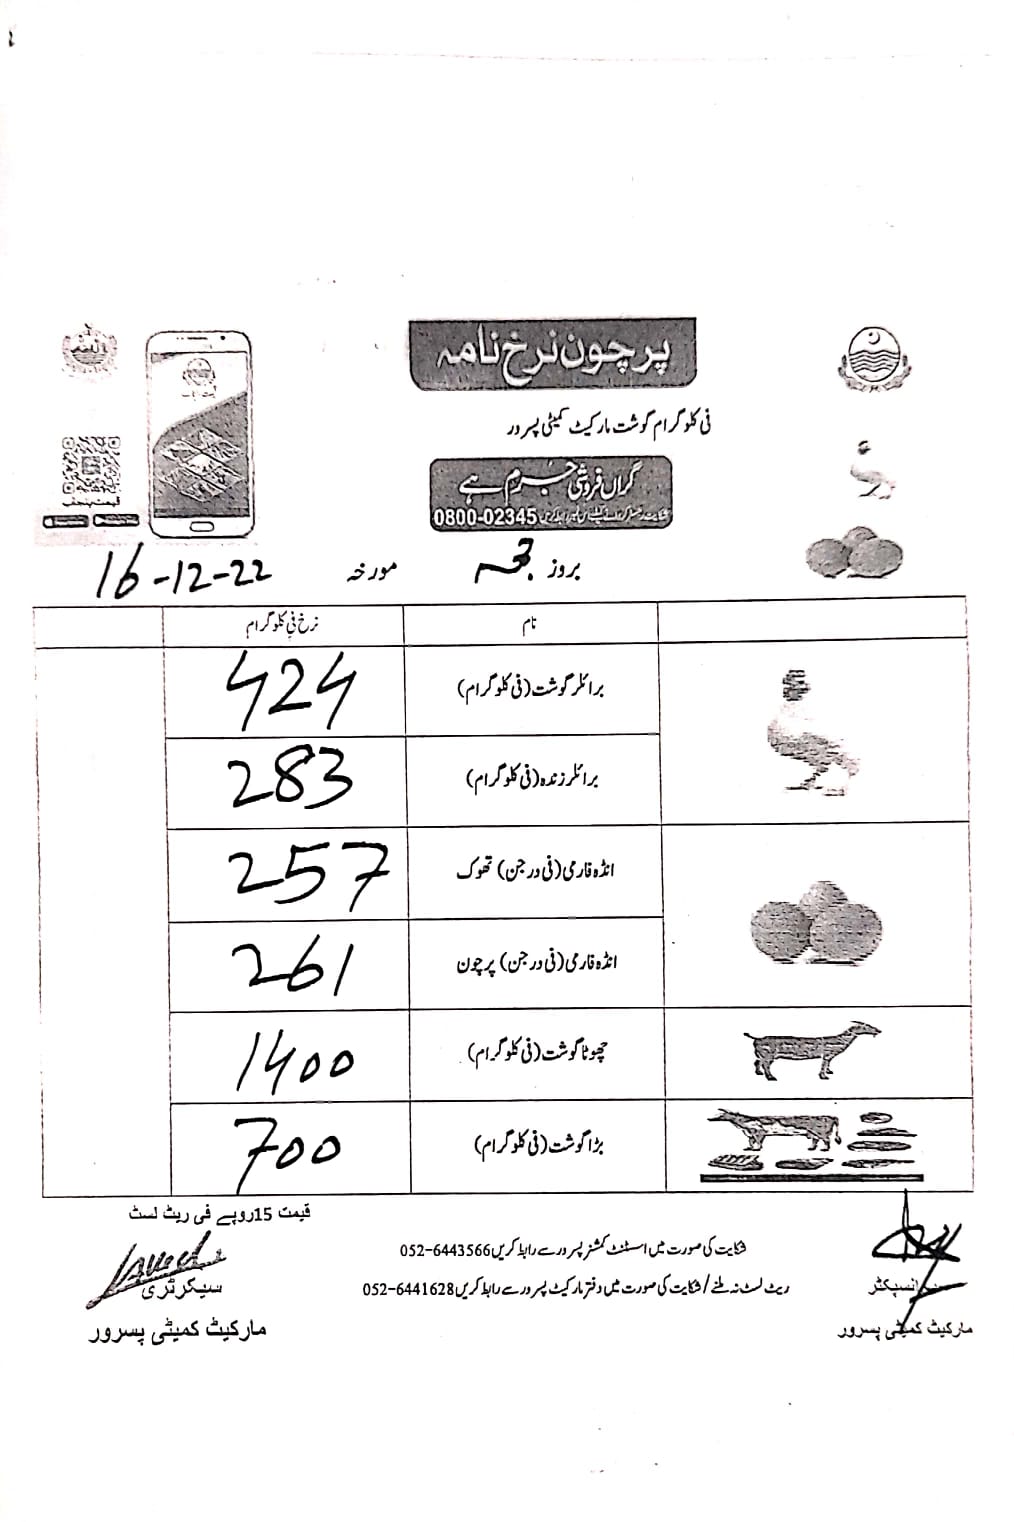 پرچون نرخ نامہ
فی کلوگرام گوشت مارکیٹ کمیٹی پسرور
گراں فروشی جرم ہے
0800-02345
قیمت پنجاب
بروز جمعہ مورخہ 16-12-22
نام نرخ فی کلوگرام
برائلر گوشت (فی کلوگرام) 424
برائلر زندہ (فی کلوگرام) 283
انڈہ فارمی (فی درجن) تھوک 257
انڈہ فارمی (فی درجن) پرچون 261
چھوٹا گوشت (فی کلوگرام) 1400
بڑا گوشت (فی کلوگرام) 700
قیمت 15 روپے فی ریٹ لسٹ
شکایت کی صورت میں اسسٹنٹ کمشنر پسرور سے رابطہ کریں 052-6443566
ریٹ لسٹ نہ ملنے / شکایت کی صورت میں دفتر مارکیٹ پسرور سے رابطہ کریں 052-6441628
انسپکٹر
مارکیٹ کمیٹی پسرور
سیکرٹری
مارکیٹ کمیٹی پسرور